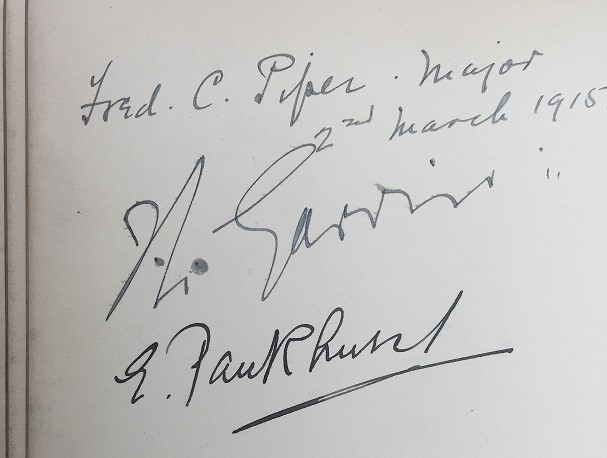 Fred. C. Piper. Major
2nd March 1915
E. Pankhurst